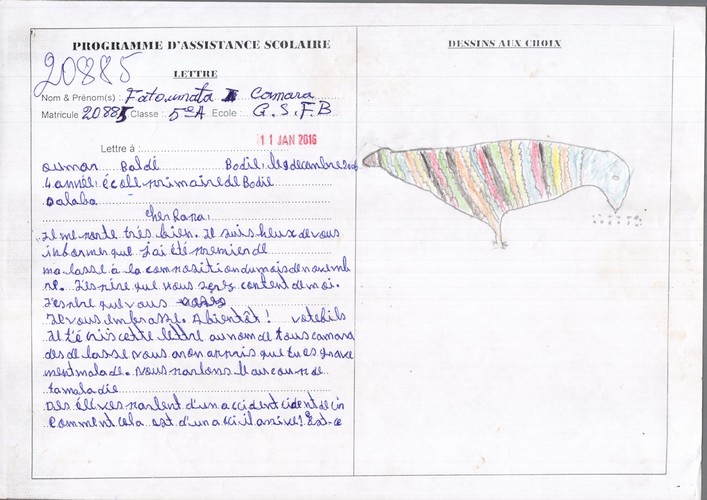 PROGRAMME D'ASSISTANCE SCOLAIRE
20885
LETTRE
Nom & Prénom(s) : Fatoumata I Camara
Matricule 20885 Classe : 5e A Ecole : G.S.F.B
11 JAN 2016
Lettre à :
oumar Baldé Bodié, le decembre
4 année, école primaire de Bodie
Dalaba
cher Papa,
Je me porte très bien. Je suis heux de vous
informer que j'ai été premier de
ma lasse à la composition du mois de novemb
re. J'espire que vous serez content de moi.
J'espire que vous
Je vous embrasse. A bientôt ! votefils
Je t'é ris cette lettre au nom de tous camara
des de lasse vous avon appris que tu es grave
ment malade. nous parlons beaucoup de
ta maladie
Des éléves parlent d'un accident
comment cela est d'un Est-ce
DESSINS AUX CHOIX